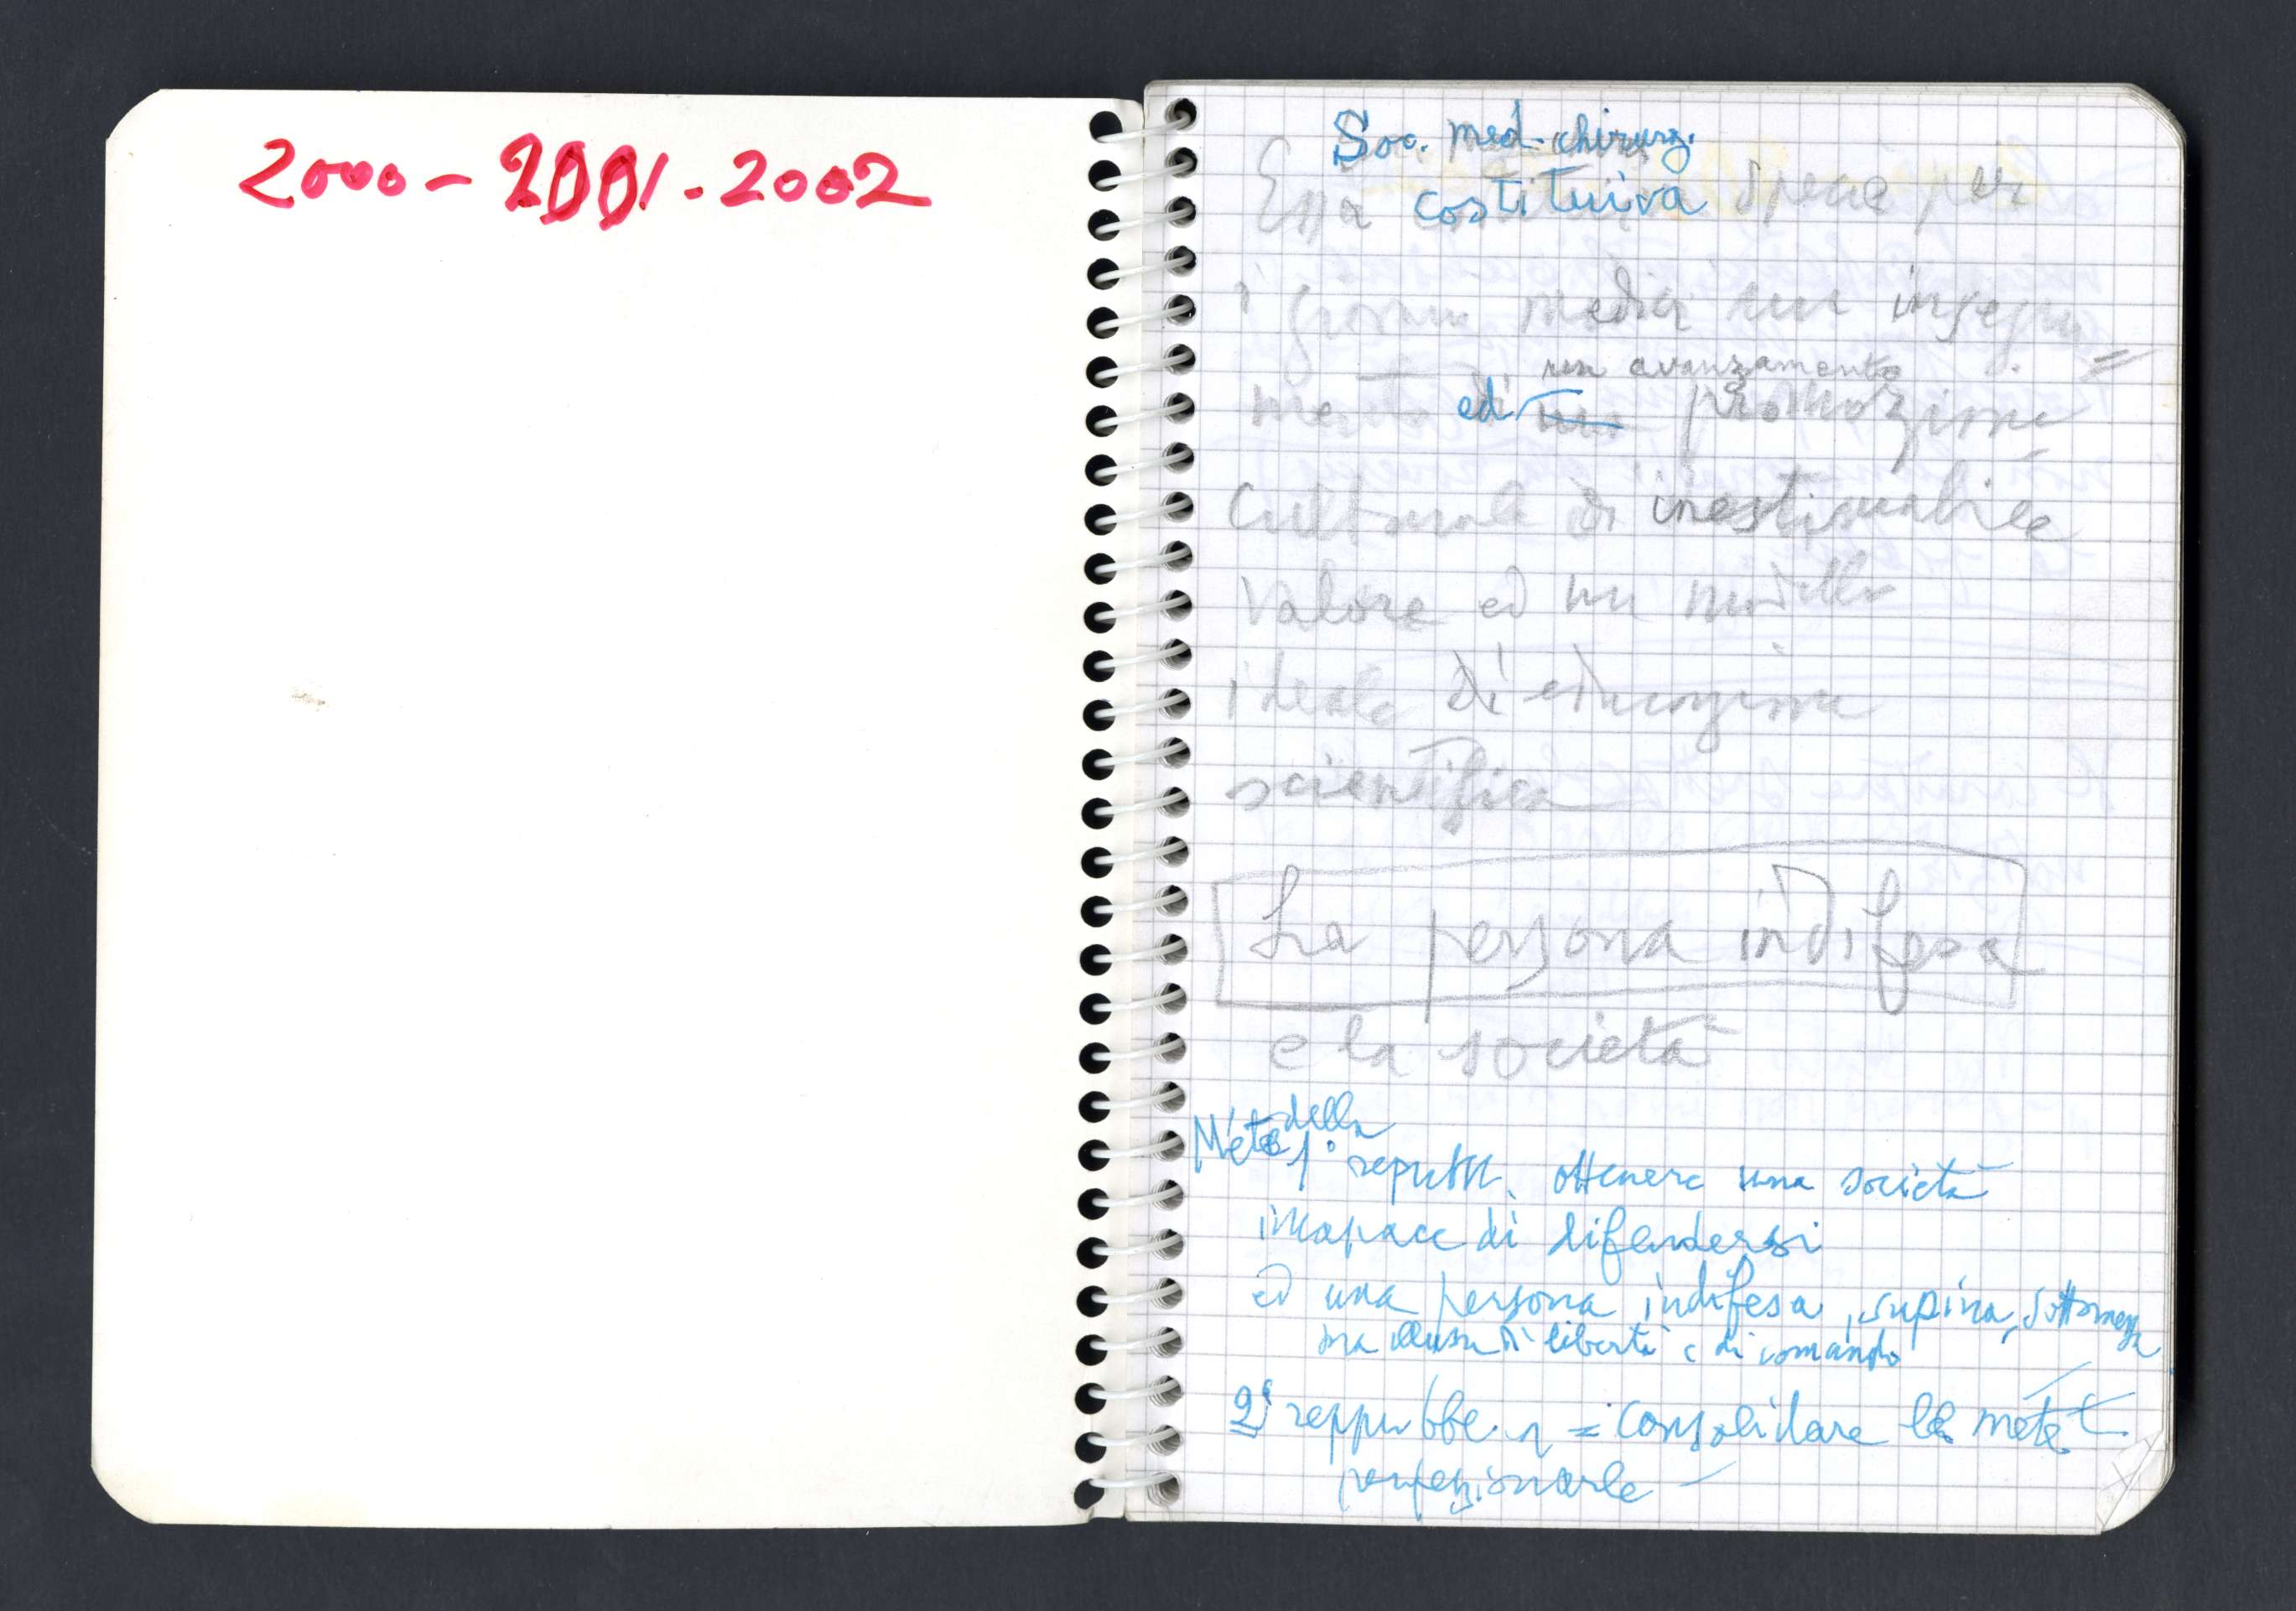 2000 - 2001 - 2002
Soc. med-chirurg.
Essa costituiva specie per
i giovani medici un insegna=
un avanzamento
mento ed promozione
culturale di inestimabile
valore ed un modello
ideale di educazione
scientifica
La persona indifesa
e la società
della
Mete 1° repubbl. ottenere una società
incapace di difendersi
ed una persona indifesa, supina, sottomessa
ma illusa di libertà e di comando
2° reppubbl. = consolidare le mete
perfezionarle